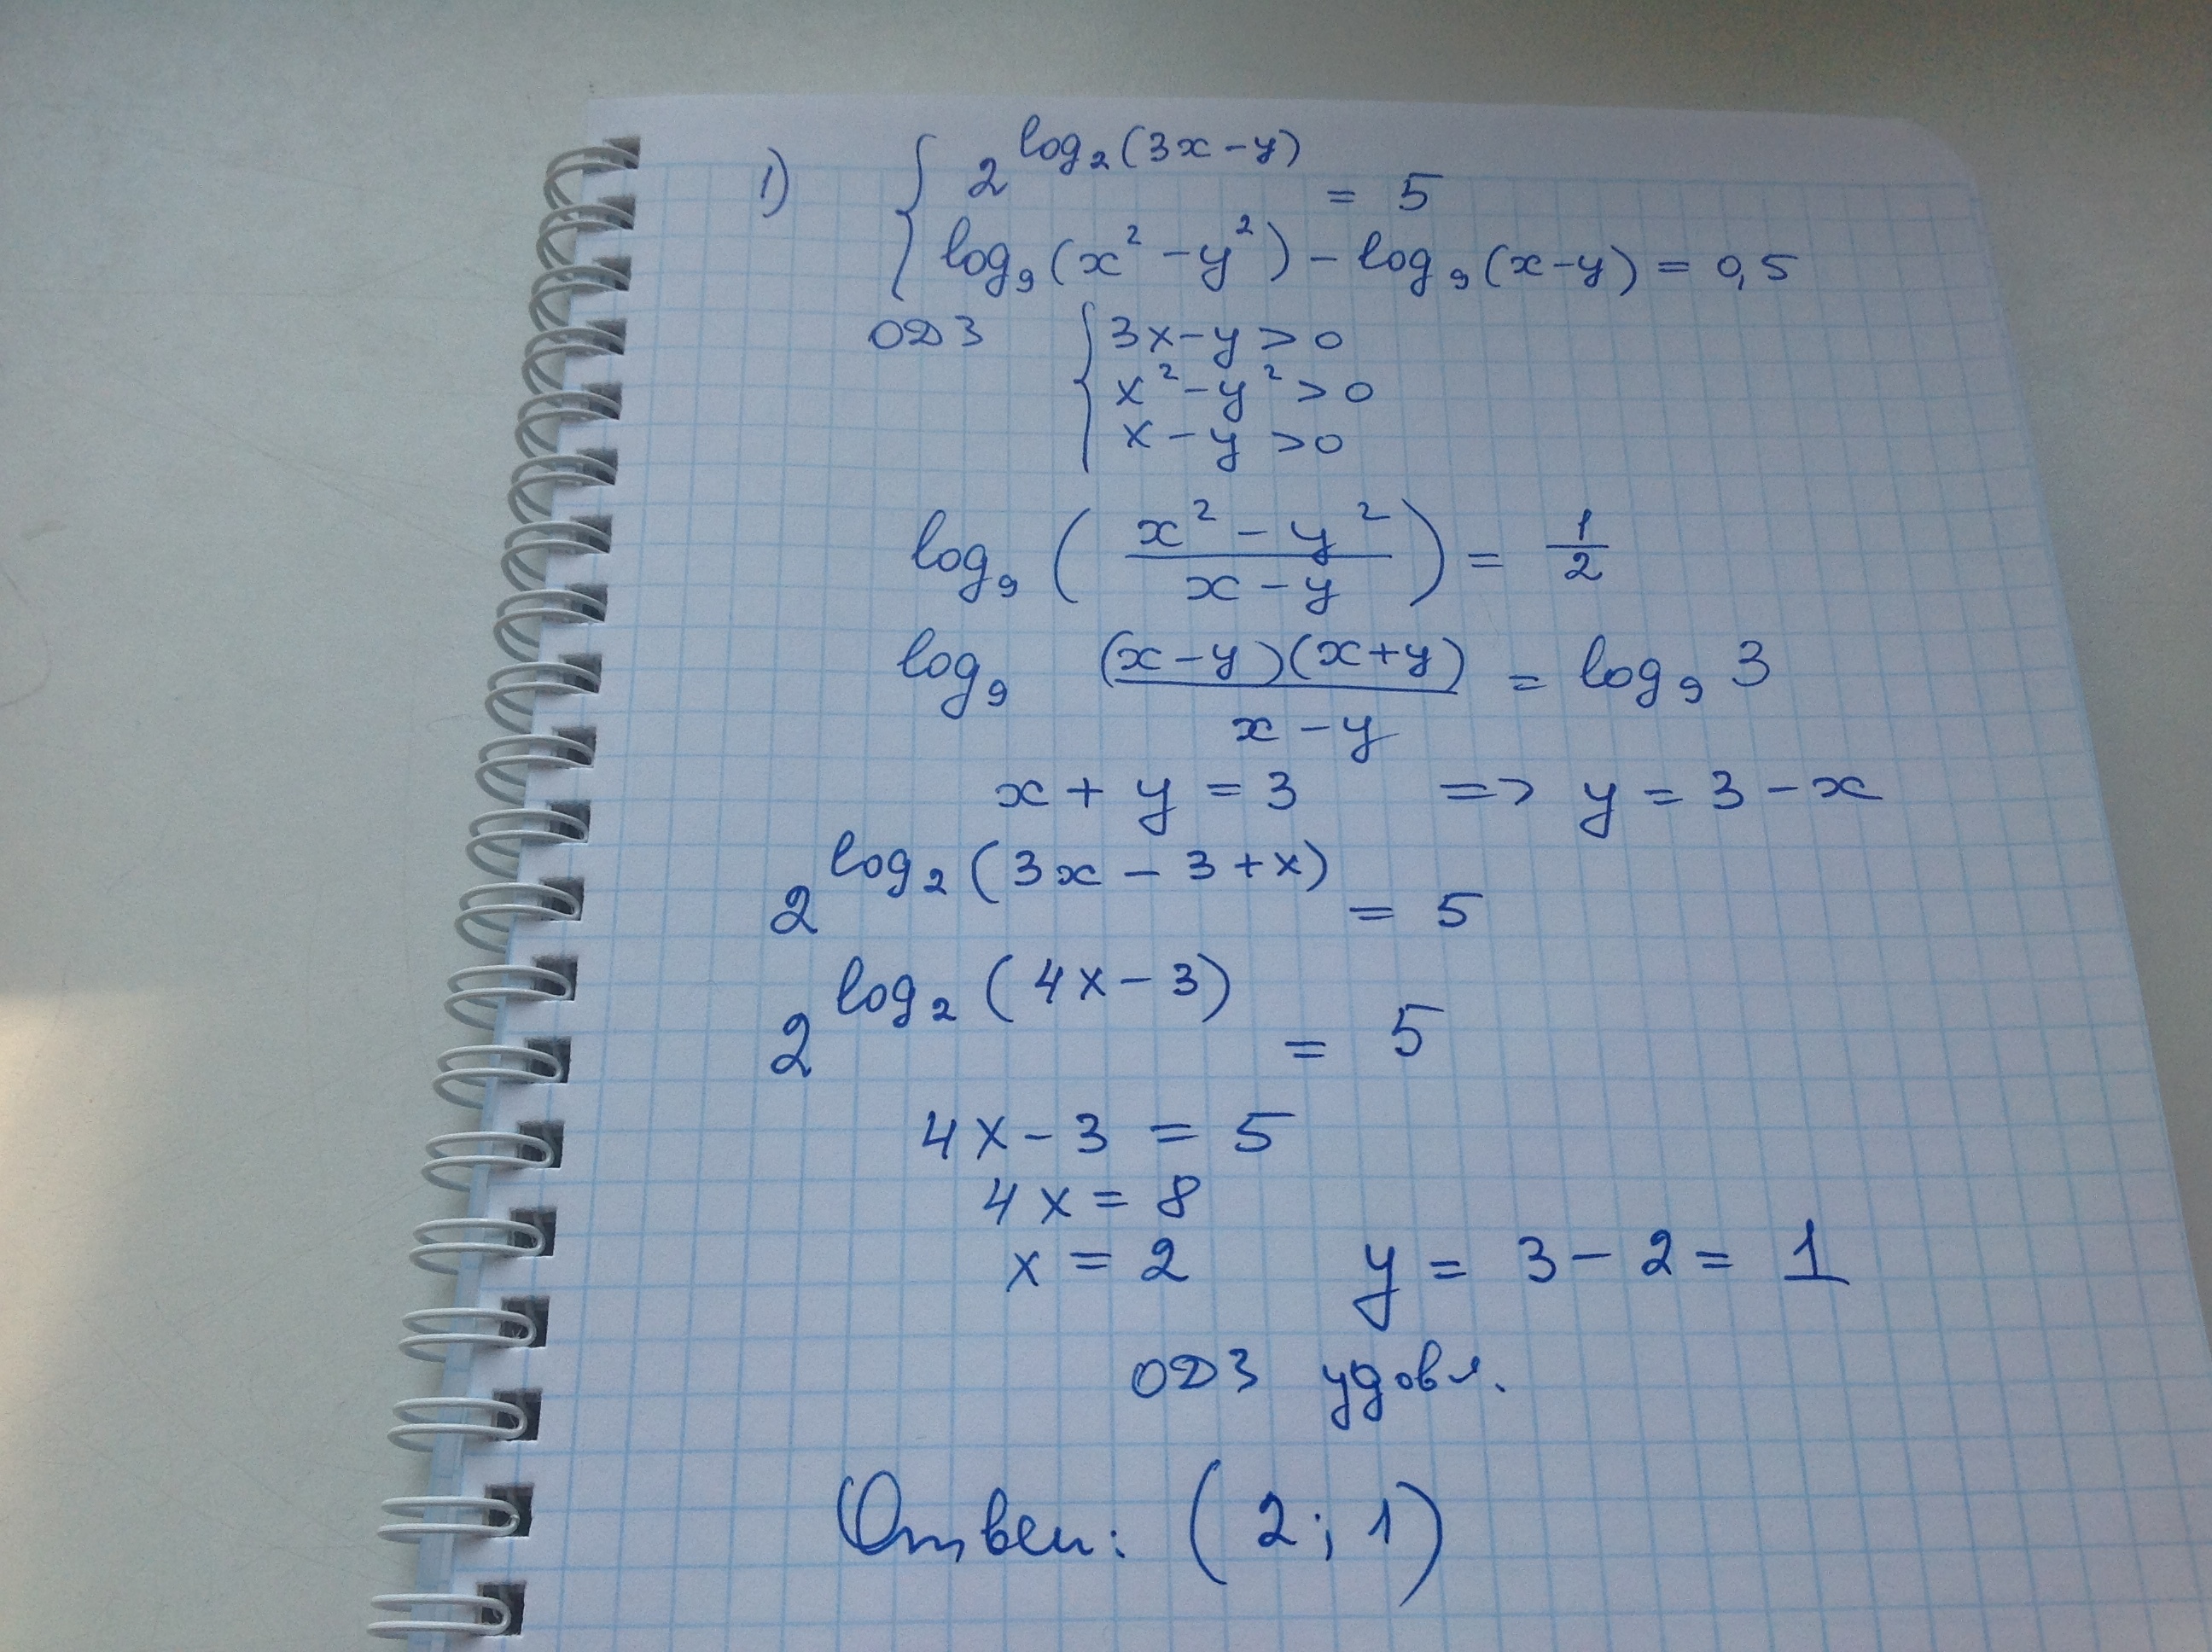 1) { 2^(log₂(3x-y)) = 5
log₉(x²-y²) - log₉(x-y) = 0,5
ОДЗ { 3x-y > 0
x²-y² > 0
x-y > 0
log₉((x²-y²)/(x-y)) = 1/2
log₉ ((x-y)(x+y))/(x-y) = log₉ 3
x + y = 3 => y = 3 - x
2^(log₂(3x - 3 + x)) = 5
2^(log₂(4x - 3)) = 5
4x - 3 = 5
4x = 8
x = 2 y = 3 - 2 = 1
ОДЗ удовл.
Ответ: (2; 1)